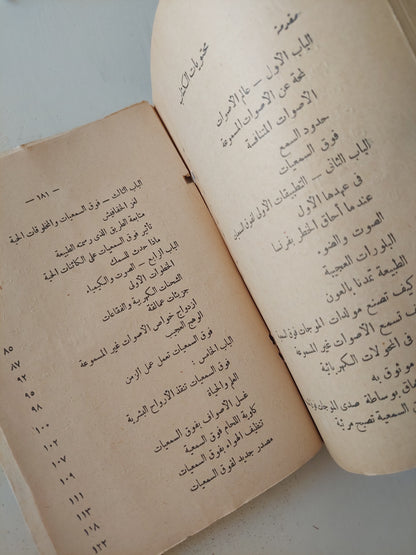 محتويات الكتاب
مقدمة
الباب الأول — عالم الأصوات
لمحة عن الأصوات المسموعة
الأصوات المتنافسة
حدود السمع
فوق السمعيات
الباب الثاني — التطبيقات الأولى لفوق
في عهدها الأول
عندما أحاق الخطر بفرنسا
الصوت والضوء
البلورات العجيبة
الطبيعة تمدنا بالعون
كيف تصنع مولدات الموجات فوق
تسمع الأصوات غير المسموعة
في المحولات الكهربائية
موثوق به
بوساطة صدى الموجات
السمعية تصبح مرئية
— ١٨١ —
الباب الثالث — فوق السمعيات والمخلوقات الحية
لغز الخفافيش
متابعة الطريق الذي رسمته الطبيعة ٨٥
تأثير فوق السمعيات على الكائنات الحية ٨٧
ماذا حدث للسمك ٩٢
الباب الرابع — الصوت والكيمياء
الخطوات الأولى ٩٥
الشحنات الكهربية والفقاعات ٩٨
جزيئات عملاقة ١٠٠
ازدواج خواص الأصوات غير المسموعة ١٠٢
الوهج العجيب ١٠٧
فوق السمعيات تعمل عمل الزمن ١٠٩
الباب الخامس :
فوق السمعيات تنقذ الأرواح البشرية ١١١
العلم والحياة ١١٣
غسل الأصواف بفوق السمعيات ١١٨
كاوية اللحام فوق السمعية ١٢٣
تنظيف الهواء بفوق السمعيات
مصدر جديد لفوق السمعيات